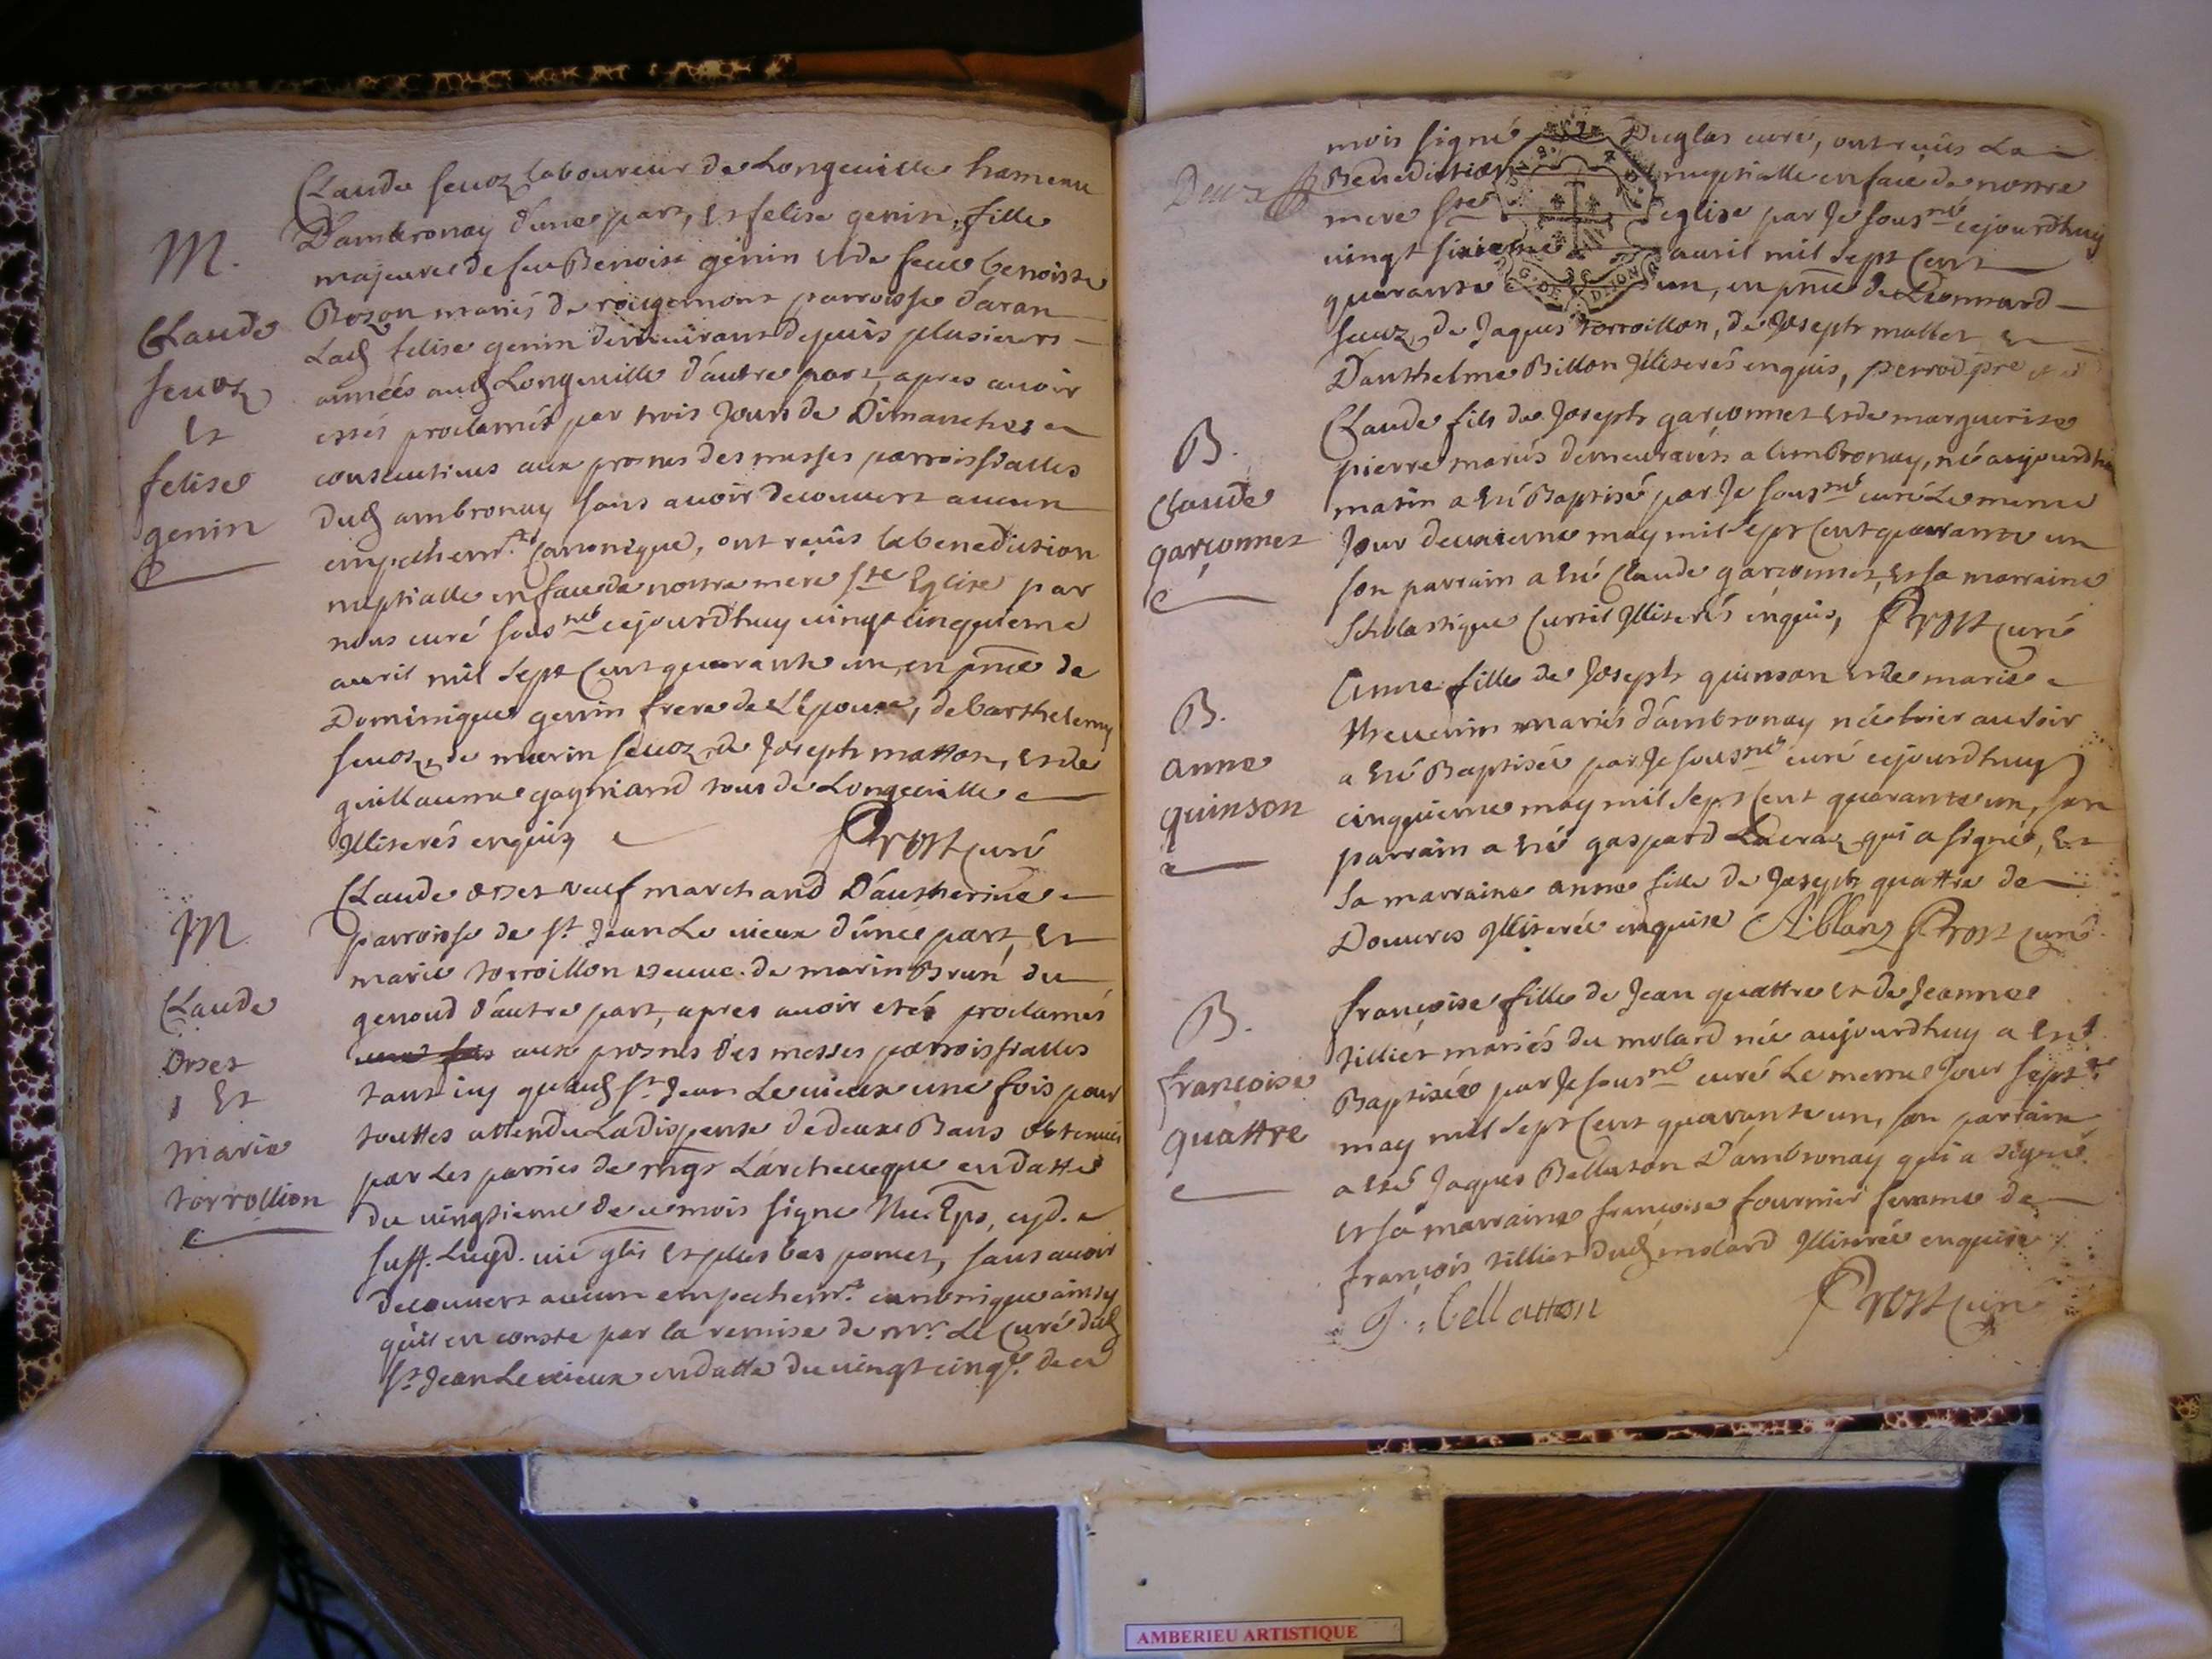 M.
Claude
Seuoz
Et
felise
genin
Claude Seuoz laboureur de Longeuille hameau
D'ambronay d'une part, et felise genin, fille
majeure de feu Benoist genin et de feue benoiste
Bozon mariés de rougemont parroisse d'aran
Lad. felise genin demeurant depuis plusieurs
années aud. Longeuille d'autre part, apres auoir
estés proclamés par trois Jours de Dimanches
consecutiues aux prosnes des messes parroissialles
dud. ambronay sans auoir decouuert aucun
empechemt. Canonique, ont reçûs la benediction
nuptialle en face de nostre mere ste Eglise par
nous curé sousné cejourdhuy uingt cinquieme
auril mil sept Cent quarante un, en pnce de
Dominique genin frere de L'Epouse, de barthelemy
Seuoz, de marin Seuoz, de Joseph matton, et de
guillaume gagniard tous de Longeuille
Illiterés enquis Prost curé
M
Claude
orset
Et
marie
torrollion
Claude orset veuf marchand D'autherine
parroisse de st Jean Le uieux d'une part, Et
marie torroillon veuue de marin Brun du
genoud d'autre part, apres auoir etés proclamés
aux prosnes des messes parroissialles
tant icy qu'aud. st Jean Le uieux une fois pour
touttes attendu La dispense de deux Bans obtenues
par Les parties de mgr L'archeueque en datte
du uingtieme de ce mois signe Nic. Eps, cyd.
suff. Lugd. uic glis et plus bas pomet, sans auoir
decouuert aucun empechemt. canonique ainsy
qu'il en conste par la remise de mr. Le Curé dud.
st Jean Le uieux en datte du uingt cinqe. de ce
mois signé Duglas curé, ont reçûs La
Deux Benediction nuptialle en face de nostre
mere ste eglise par Je sousné cejourdhuy
uingt sixieme auril mil sept Cent
quarante un, en pnce de Leonnard
Seuoz, de Jaques torroillon, de Joseph mallet, et
D'anthelme Billon Illiterés enquis, perrod pre
B.
Claude
garçonnet
Claude fils de Joseph garçonnet et de marguerite
pierre mariés demeurants a ambronay, né aujourdhuy
matin a Eté Baptisé par Je sousné curé Le meme
Jour deuxieme may mil sept Cent quarante un
son parrain a Eté Claude garçonnet, et sa marraine
Scholastique Curtil Illiterés enquis, Prost curé
B.
anne
quinson
Anne fille de Joseph quinson et de marie
theuenin mariés d'ambronay née hier au soir
a Eté Baptisée par Je sousné curé cejourdhuy
cinquieme may mil sept Cent quarante un, son
parrain a Eté gaspard Lacraz qui a signé, Et
sa marraine anne fille de Joseph quattre de
Douures Illiterée enquise A:blanz Prost curé
B.
françoise
quattre
françoise fille de Jean quattre et de Jeanne
tillier mariés du molard née aujourdhuy a Eté
Baptisée par Je sousné curé Le meme Jour septe
may mil sept Cent quarante un, son parrain
a Eté Jaques Bellaton D'ambronay qui a signé
et sa marraine françoise fournier femme de
françois tillier dud. molard Illiterée enquise
J. bellatton Prost curé
G. DE DIJON
AMBERIEU ARTISTIQUE